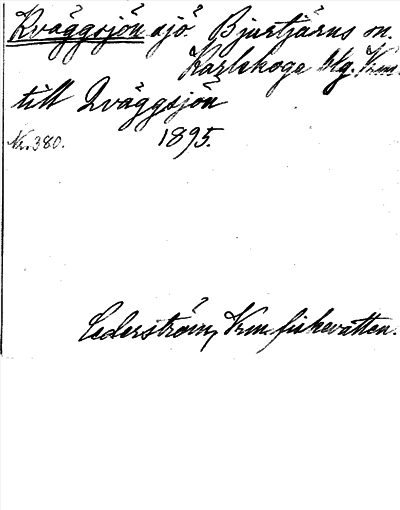 Kväggsjön sjö. Bjurtjärns sn.
Karlskoga blg. Vrm.
till Qväggsjön
Nr. 380. 1895.
Cederström, Vrm. fiskevatten.